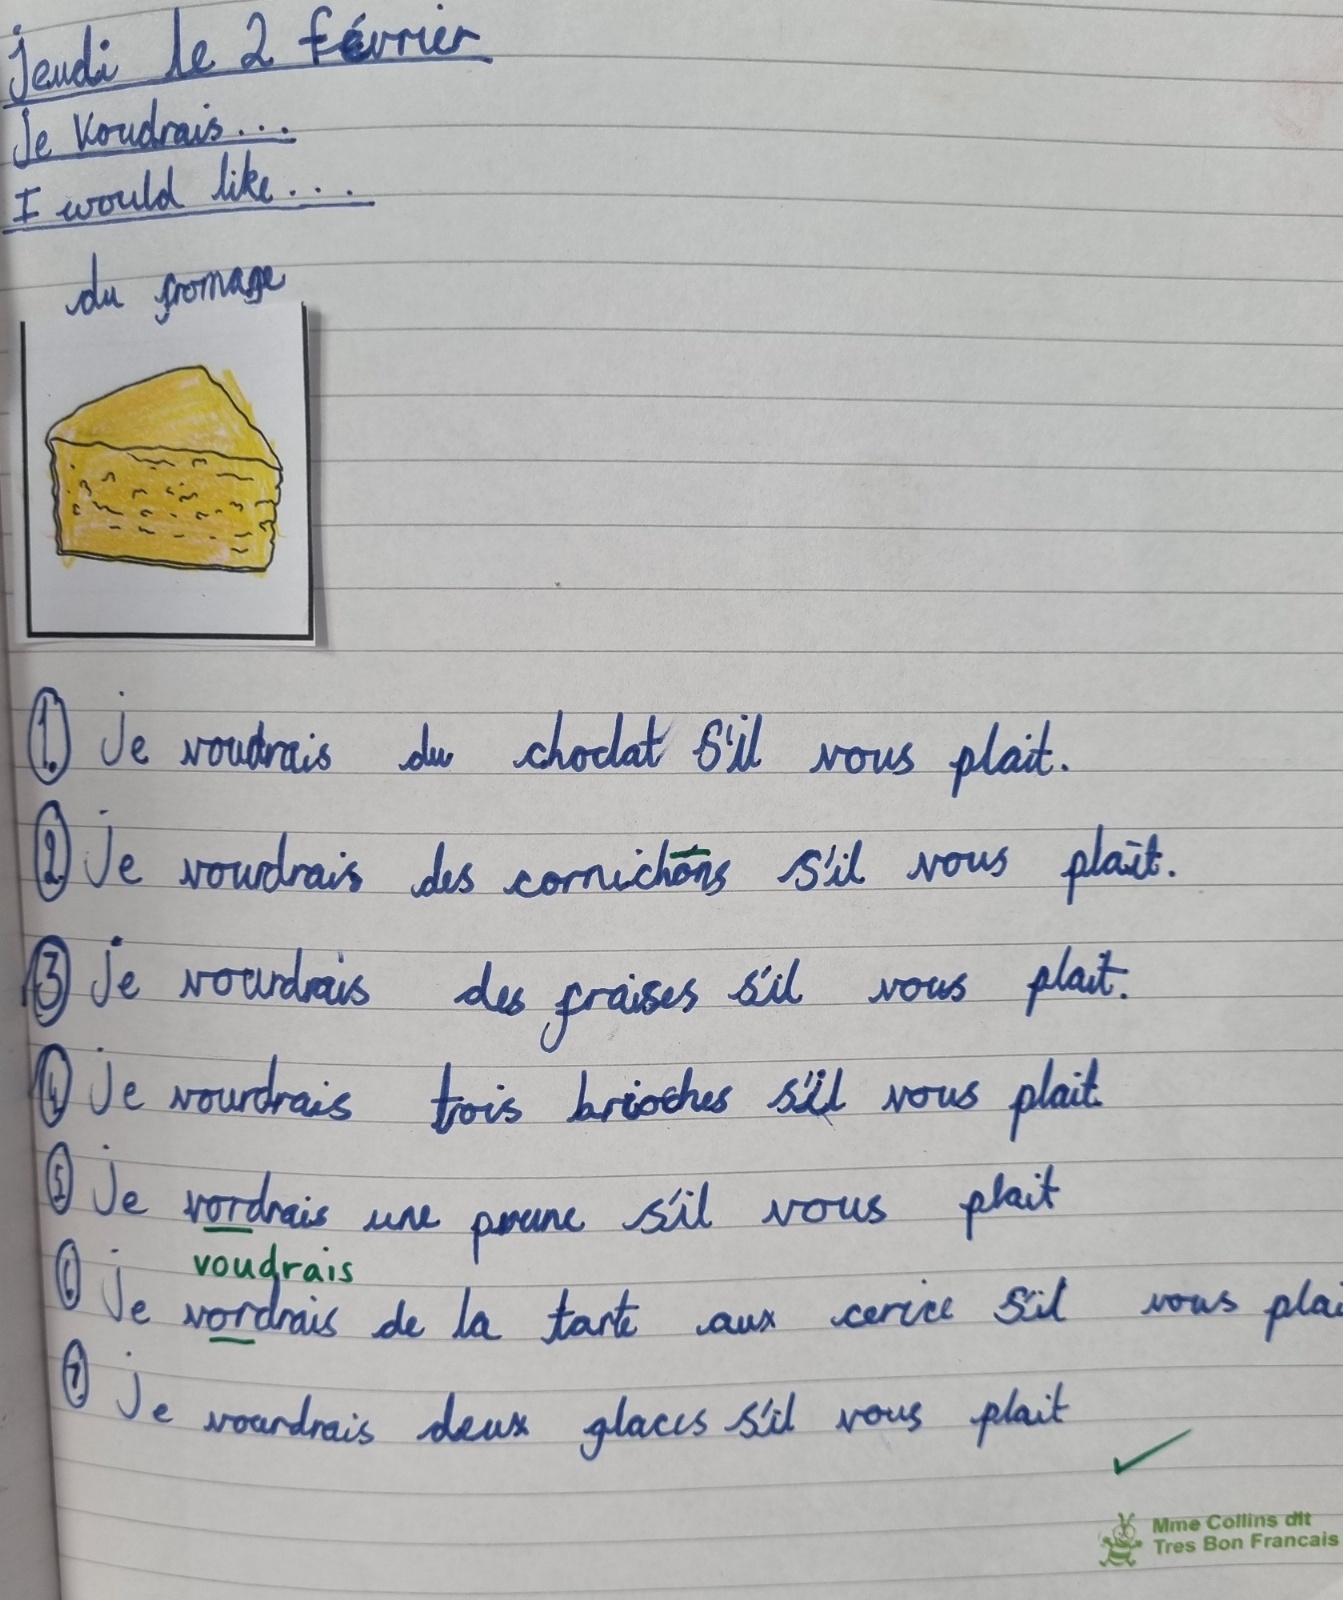 Jeudi le 2 février
Je Voudrais...
I would like....
du fromage
1. Je voudrais du choclat s'il vous plait.
2 Je vourdrais des cornichons s'il vous plaît.
3 Je vourdrais des fraises s'il vous plait.
4 Je vourdrais trois brioches s'il vous plait
5 Je vordrais une prune s'il vous plait
voudrais
6 Je vordrais de la tarte aux cerice s'il vous plai
7 Je vourdrais deux glaces s'il vous plait
Mme Collins dit
Tres Bon Francais